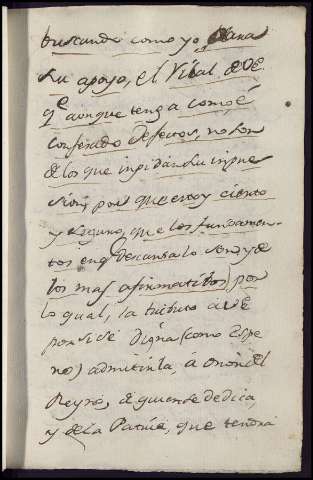 buscando como yo
su apoyo, el
qe aunque tenga como é
confesado defectos, no son
de los que inpidan su inpre
sion, pues que estoy cierto
y seguro, que los fundamen-
tos en q descansa lo son, y de
los mas afirmatibos) por
lo qual, la tributo á VE
por si se digna (como espe
ro) admitirla, á onor del
Reyno, á quien se dedica,
y de la Patria, que tendrá